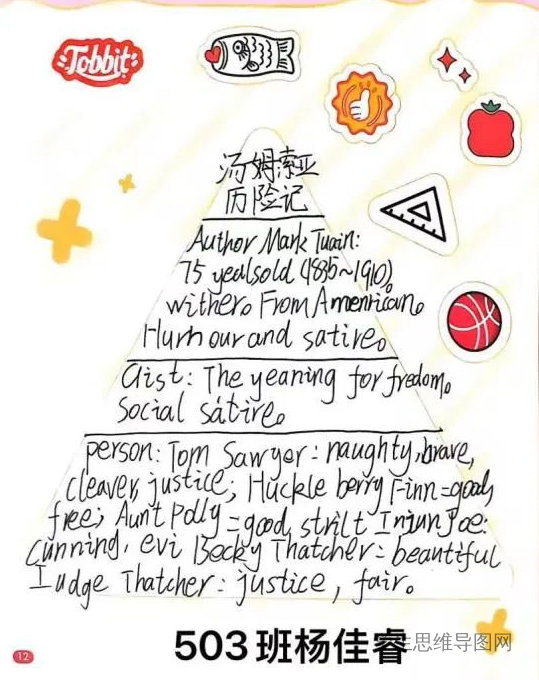 Tobbit
汤姆索亚
历险记
Author Mark Twain:
75 yealsold (1835~1910)。
wither。From Amenrican。
Hurhour and satire。
Gist: The yeaning for fredom。
Social satire。
person: Tom Sawyer: naughty, brave,
cleaver, justice; Huckle berry Finn=good,
free; Aunt Polly=good, strilt Injun Joe:
Cunning, evi Becky Thatcher: beautiful
Iudge Thatcher: justice, fair。
12
503班杨佳睿
生思维导图网